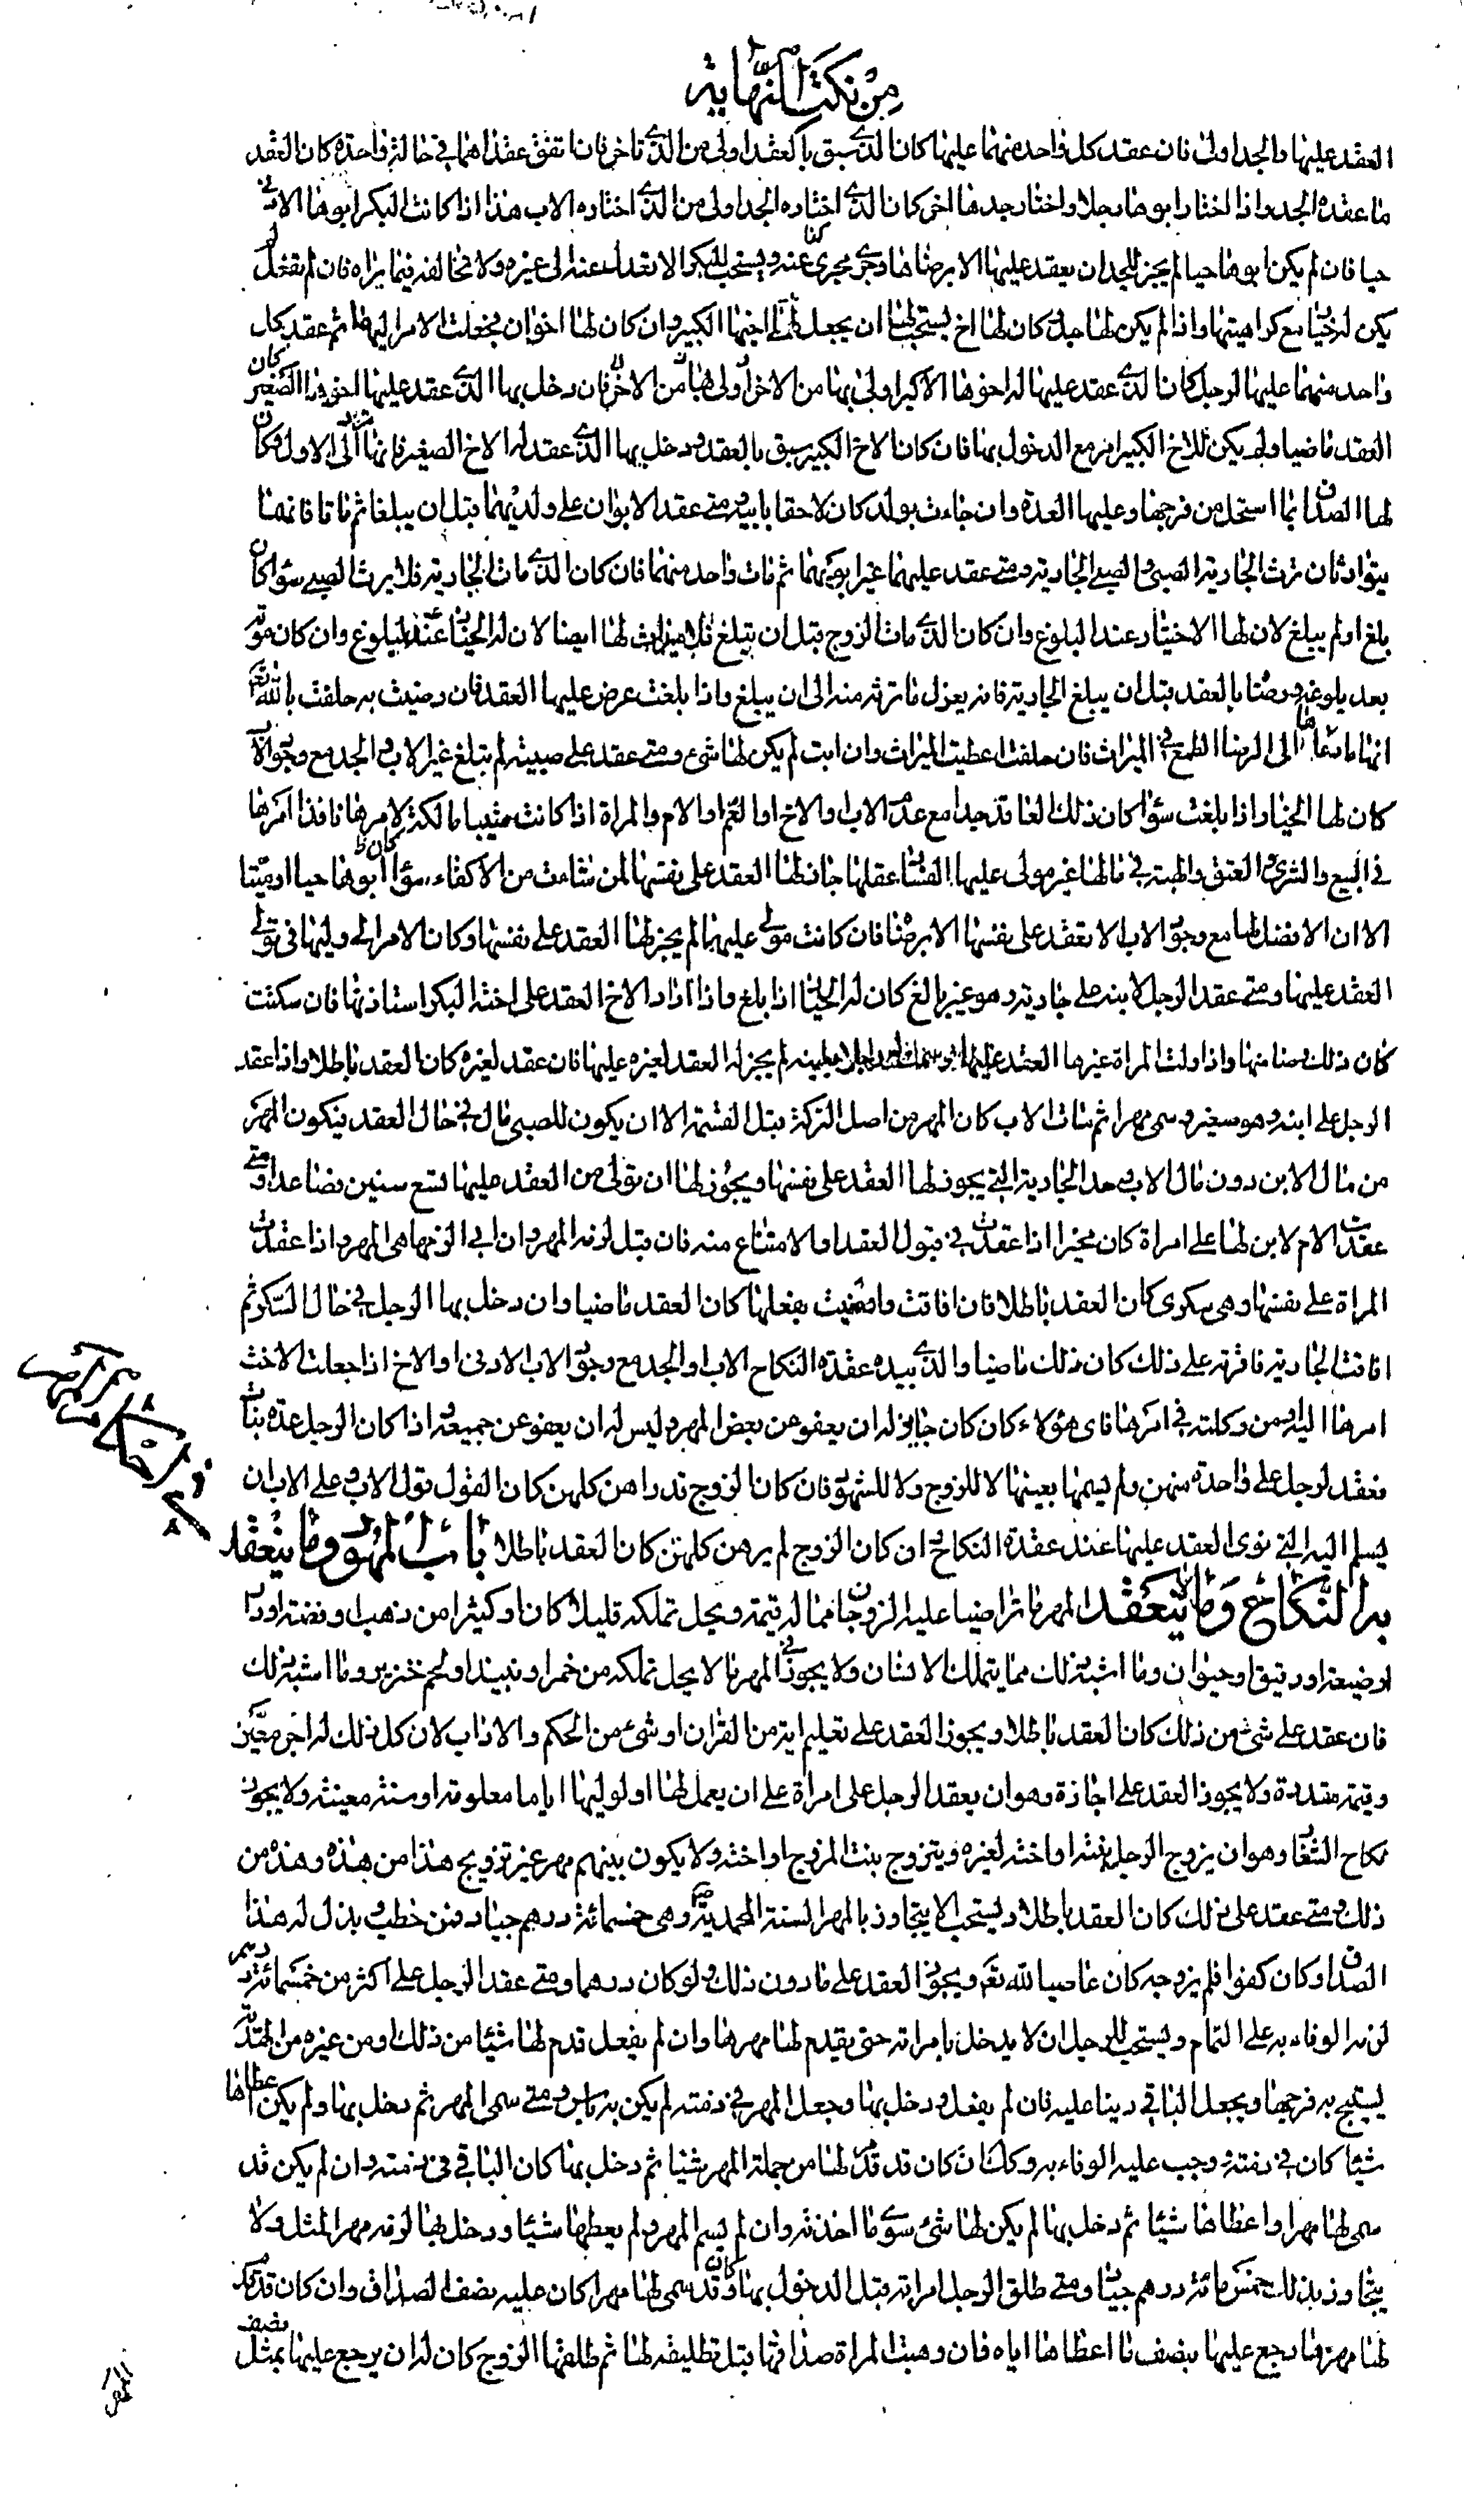 من نكت النهاية
العقد عليها والجد اولى فان عقد كل واحد منهما عليها كان الذى سبق بالعقد اولى من الذى تاخر فان اتفق عقداهما في حالة واحدة كان العقد
ما عقده الجد واذا اختار ابوها رجلا واختار جدها اخر كان الذى اختاره الجد اولى من الذى اختاره الاب هذا اذا كانت البكر ابوها الادنى
حيا فان لم يكن ابوها حيا لم يجز للجد ان يعقد عليها الا برضاها وجرى مجرى غيره ويستحب للبكر الا تعدل عنه الى غيره ولا تخالفه فيما يراه فان لم يفعل لم
يكن له خيار مع كراهيتها واذا لم يكن لها جد وكان لها اخ يستحب لها ان يجعل الامر الى اخيها الكبير وان كان لها اخوان فجعلت الامر اليهما ثم عقد كل
واحد منهما عليها لرجل كان الذى عقد عليها له اخوها الاكبر اولى بها من الاخر فان دخل بها الذى عقد عليها اخوها الصغير كان
العقد ماضيا ولم يكن للاخ الكبير امر مع الدخول بها فان كان الاخ الكبير سبق بالعقد ودخل بها الذى عقد له الاخ الصغير فانها ترد الى الاول وكان
لها الصداق بما استحل من فرجها وعليها العدة وان جاءت بولد كان لاحقا بابيه ومتى عقد الابوان على ولديهما قبل ان يبلغا ثم ماتا فانهما
يتوارثان ترث الجارية الصبى والصبى الجارية ومتى عقد عليهما غير ابويهما ثم مات واحد منهما فان كان الذى مات الجارية فلا يرث الصبى سواء كان
بلغ او لم يبلغ لان لها الاختيار عند البلوغ وان كان الذى مات الزوج قبل ان يبلغ فلا ميراث لها ايضا لان له الخيار عند البلوغ وان كان موته
بعد بلوغه ورضاه بالعقد قبل ان يبلغ الجارية فانه يعزل ما ترثه منه الى ان يبلغ واذا بلغت عرض عليها العقد فان رضيت به حلفت بالله تعالى
انها ما دعاها الى الرضا الطمع في الميراث فان حلفت اعطيت الميراث وان ابت لم يكن لها شيء ومتى عقد على صبية لم تبلغ غير الاب والجد مع وجود الاب
كان لها الخيار اذا بلغت سواء كان ذلك العاقد جدا مع عدم الاب والاخ او العم او الام والمراة اذا كانت ثيبا مالكة لامرها نافذا امرها
في البيع والشرى والعتق والهبة في مالها غير مولى عليها لفساد عقلها جاز لها العقد على نفسها لمن شاءت من الاكفاء سواء كان ابوها حيا او ميتا
الا ان الافضل لها مع وجود الاب الا تعقد على نفسها الا برضاه فان كانت مولى عليها لم يجز لها العقد على نفسها وكان الامر الى وليها في تولى
العقد عليها ومتى عقد الرجل لابنه على جارية وهو غير بالغ كان له الخيار اذا بلغ واذا اراد الاخ العقد على اخته البكر استاذنها فان سكتت
كان ذلك رضا منها واذا ولت المراة غيرها العقد عليها وسمت له رجلا بعينه لم يجز له العقد لغيره عليها فان عقد لغيره كان العقد باطلا واذا عقد
الرجل على ابنه وهو صغير وسمى مهرا ثم مات الاب كان المهر من اصل التركة قبل القسمة الا ان يكون للصبى مال في حال العقد فيكون المهر
من مال الابن دون مال الاب وحد الجارية التى يجوز لها العقد على نفسها ويجوز لها ان تولى من العقد عليها تسع سنين فصاعدا ومتى
عقدت الام لابن لها على امراة كان مخيرا اذا عقدت في قبول العقد والامتناع منه فان قبل لزمه المهر وان ابى لزمها هى المهر واذا عقدت
المراة على نفسها وهى سكرى كان العقد باطلا فان افاقت ورضيت بفعلها كان العقد ماضيا وان دخل بها الرجل في حال السكر ثم
افاقت الجارية فاقرته على ذلك كان ذلك ماضيا والذى بيده عقدة النكاح الاب والجد مع وجود الاب الادنى او الاخ اذا جعلت الاخت
امرها اليه او من وكلته في امرها فاى هؤلاء كان كان جايز له ان يعفو عن بعض المهر وليس له ان يعفو عن جميعه واذا كان الرجل عدة بنات
فعقد لرجل على واحدة منهن ولم يسمها بعينها لا للزوج ولا للشهود فان كان الزوج قد راهن كلهن كان القول قول الاب وعلى الاب ان
يسلم اليه التى نوى العقد عليها عند عقدة النكاح وان كان الزوج لم يرهن كلهن كان العقد باطلا باب المهور وما ينعقد
به النكاح وما لا ينعقد المهر ما تراضيا عليه الزوجان مما له قيمة ويحل تملكه قليلا كان او كثيرا من ذهب او فضة او دار
او ضيعة او رقيق او حيوان وما اشبه ذلك مما يتملك الانسان ولا يجوز في المهر ما لا يحل تملكه من خمر او نبيذ او لحم خنزير وما اشبه ذلك
فان عقد على شئ من ذلك كان العقد باطلا ويجوز العقد على تعليم اية من القران او شىء من الحكم والاداب لان كل ذلك له اجر معين
وقيمة مقدرة ولا يجوز العقد على اجازة وهو ان يعقد الرجل على امراة على ان يعمل لها او لوليها اياما معلومة او سنة معينة ولا يجوز
نكاح الشغار وهو ان يزوج الرجل بنته او اخته لغيره ويتزوج بنت المزوج او اخته ولا يكون بينهم مهر غير تزويج هذا من هذه وهذه من
ذلك ومتى عقد على ذلك كان العقد باطلا ويستحب الا يتجاوز بالمهر السنة المحمدية وهى خمسمائة درهم جياد فمن خطب وبذل له هذا
الصداق وكان كفوا فلم يزوجه كان عاصيا لله تع ويجوز العقد على ما دون ذلك ولو كان درهما ومتى عقد الرجل على اكثر من خمسمائة درهم
لزمه الوفاء به على التمام ويستحب للرجل ان لا يدخل بامراته حتى يقدم لها مهرها وان لم يفعل قدم لها شيئا من ذلك او من غيره من الهدية
يستبيح به فرجها ويجعل الباقي دينا عليه فان لم يفعل ودخل بها وجعل المهر في ذمته لم يكن به باس ومتى سمى المهر ثم دخل بها ولم يكن اعطاها
شيئا كان في ذمته ووجب عليه الوفاء به وكذلك ان كان قد قدم لها من جملة المهر شيئا ثم دخل بها كان الباقي في ذمته وان لم يكن قد
سمى لها مهرا واعطاها شيئا ثم دخل بها لم يكن لها شىء سوى ما اخذته وان لم يسم المهر ولم يعطها شيئا ودخل بها لزمه مهر المثل ولا
يتجاوز بذلك خمس مائة درهم جياد ومتى طلق الرجل امراته قبل الدخول بها وكان قد سمى لها مهرا كان عليه نصف الصداق وان كان قد قدم
لها مهرها رجع عليها بنصف ما اعطاها اياه فان وهبت المراة صداقها قبل تطليقه لها ثم طلقها الزوج كان له ان يرجع عليها بمثل نصف